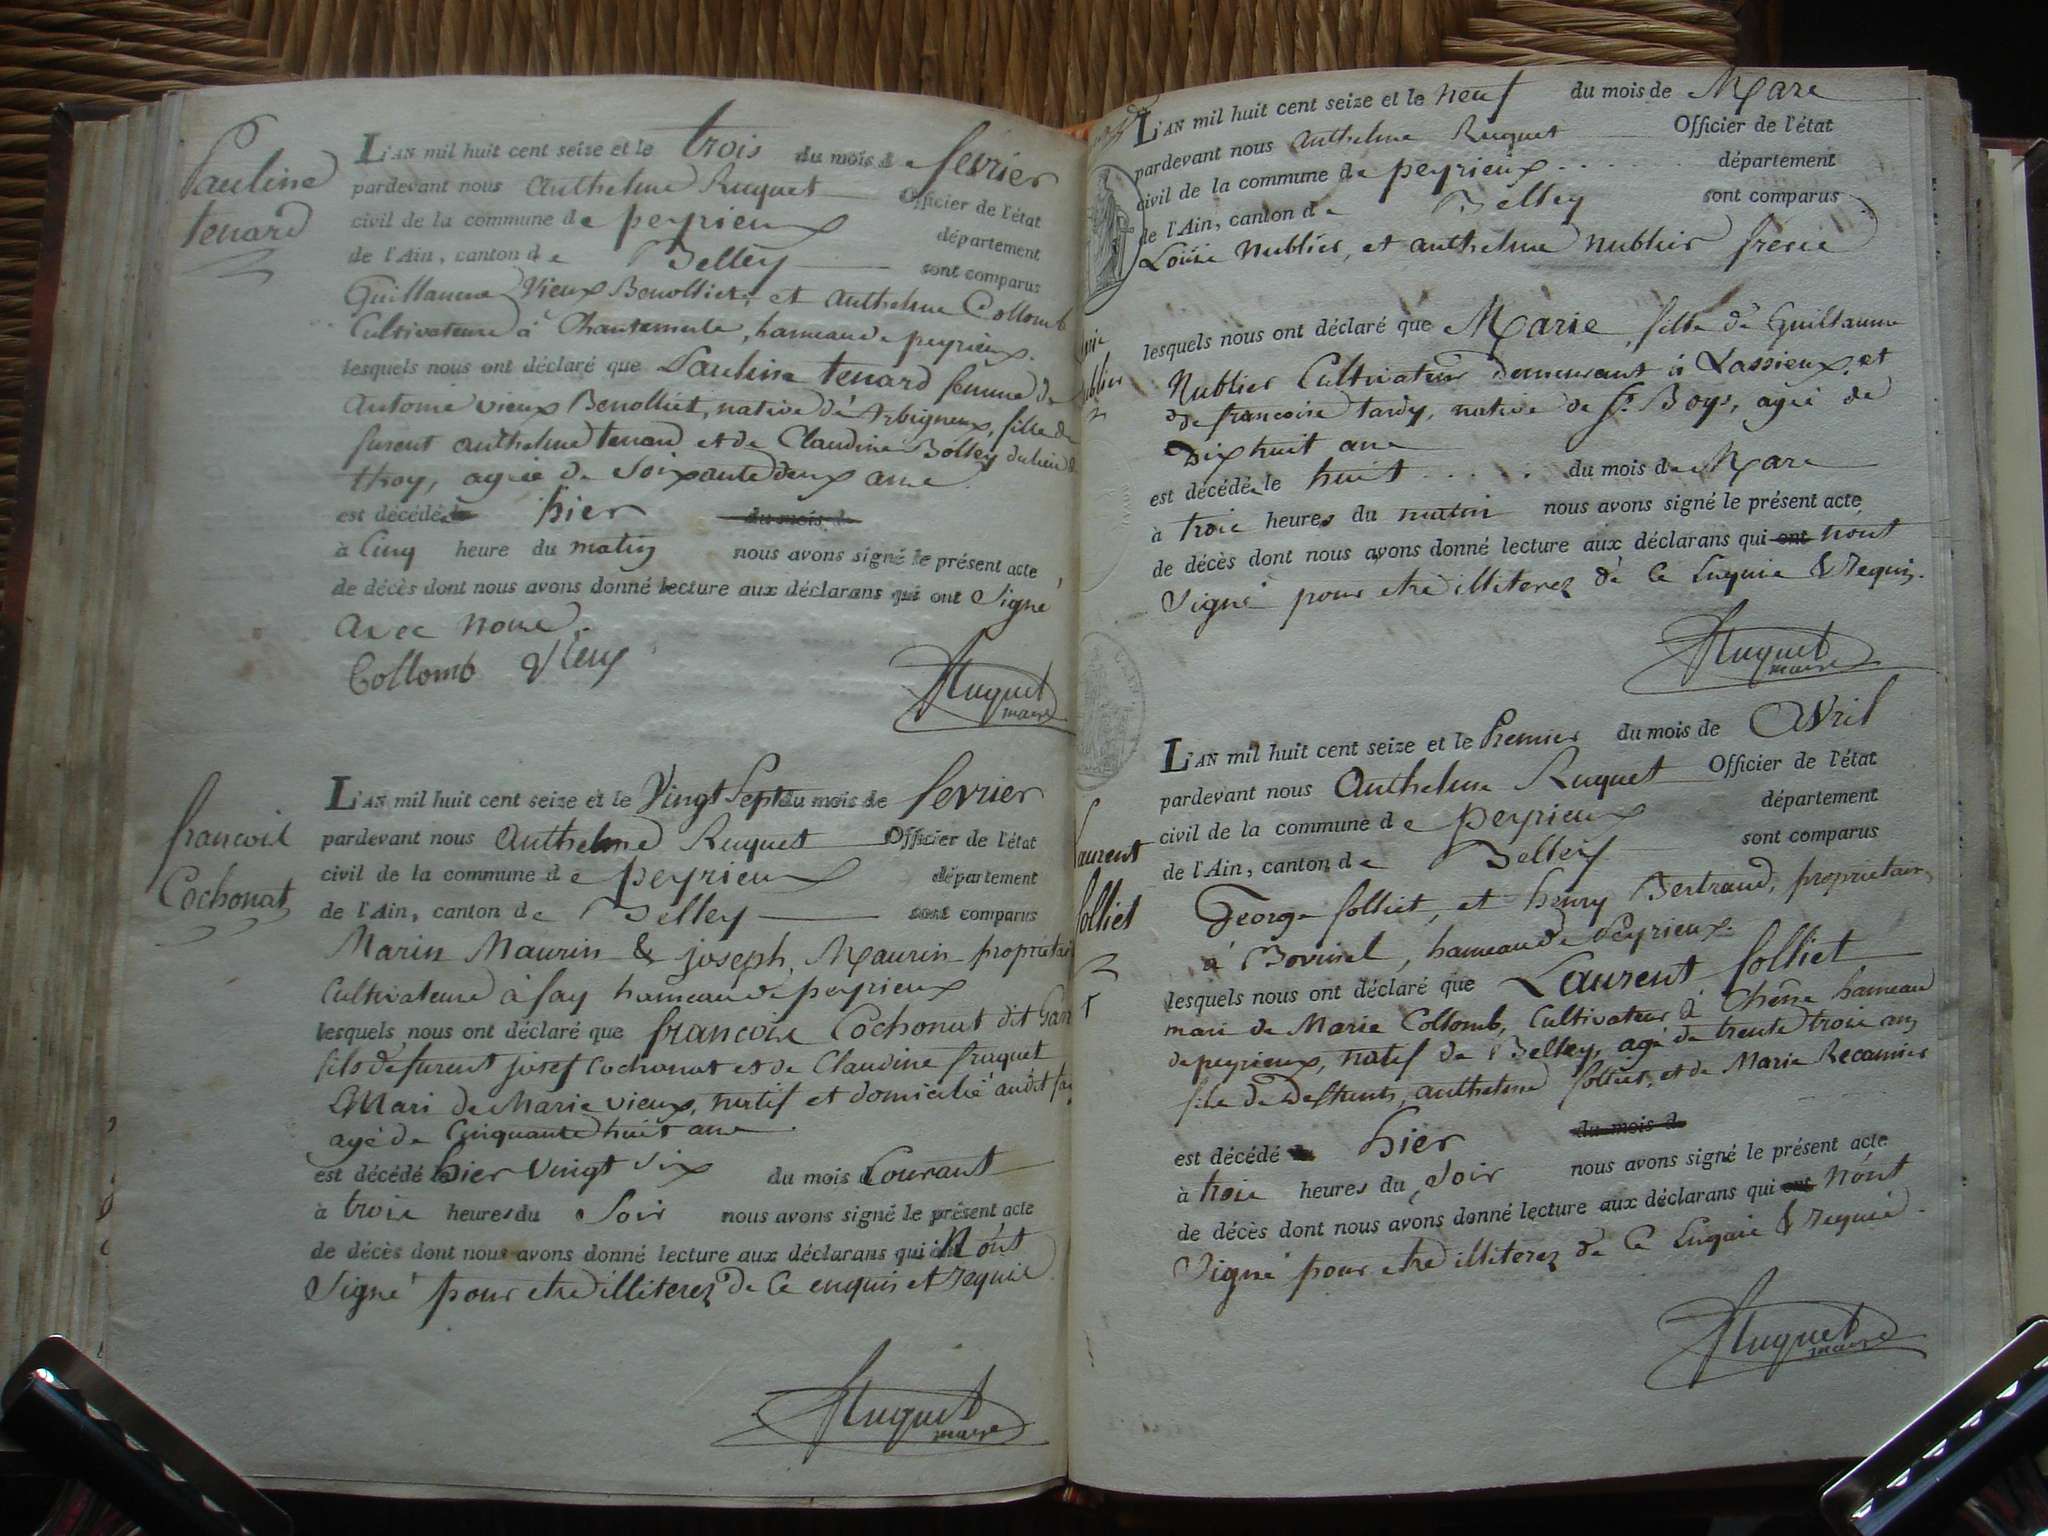 Pauline
tenard
L'AN mil huit cent seize et le trois du mois de fevrier
pardevant nous Anthelme Ruquet Officier de l'état
civil de la commune de peyrieux département
de l'Ain, canton de Belley sont comparus
Guillaume Vieux Benolliet, et Anthelme Collomb
Cultivateurs à Chantemerle, hameau de peyrieux.
lesquels nous ont déclaré que Pauline tenard femme de
Antoine vieux Benolliet, native d'Arbigneux, fille de
furent anthelme tenard et de Claudine Bolley du lieu de
thoy, agée de Soixante deux ans
est décédée le hier du mois de
à Cinq heure du matin nous avons signé le présent acte
de décès dont nous avons donné lecture aux déclarans qui ont signé
avec nous.
Collomb Vieux
Ruquet
maire
francois
Cochonat
L'AN mil huit cent seize et le Vingt Sept du mois de fevrier
pardevant nous Anthelme Ruquet Officier de l'état
civil de la commune de peyrieux département
de l'Ain, canton de Belley sont comparus
Marin Maurin & joseph Maurin propriétai
Cultivateurs à fay hameau de peyrieux
lesquels nous ont déclaré que francois Cochonat dit
fils de furent josef Cochonat et de Claudine fruquet
Mari de Marie vieux, natif et domicilié audit fay
agé de Cinquante huit ans.
est décédé hier vingt six du mois Courant
à trois heures du Soir nous avons signé le présent acte
de décès dont nous avons donné lecture aux déclarans qui N'ont
Signé pour etre illiterez de ce enquis et requis
Ruquet
maire
L'AN mil huit cent seize et le neuf du mois de Mars
pardevant nous Anthelme Ruquet Officier de l'état
civil de la commune de peyrieux département
de l'Ain, canton de Belley sont comparus
Louis Nublier, et anthelme nublier freres
lesquels nous ont déclaré que Marie, fille de Guillaume
Nublier Cultivateur demeurant à Lassieux, et
de francoise tardy, native de St. Boys, agée de
Dix huit ans
est décédée le huit du mois de Mars
à trois heures du matin nous avons signé le présent acte
de décès dont nous avons donné lecture aux déclarans qui ont n'ont
Signé pour etre illiterez de ce Enquis & requis.
Ruquet
maire
Laurent
folliet
L'AN mil huit cent seize et le Premier du mois de Avril
pardevant nous Anthelme Ruquet Officier de l'état
civil de la commune de peyrieux département
de l'Ain, canton de Belley sont comparus
George folliet, et henry Bertrand, proprietair
à Bovinel, hameau de Peyrieux.
lesquels nous ont déclaré que Laurent folliet
mari de Marie Collomb, Cultivateur à Chêne hameau
de peyrieux, natif de Belley, agé de trente trois ans
fils de Defunts, anthelme folliet, et de Marie Recamier
est décédé le hier du mois d
à trois heures du Soir nous avons signé le présent acte
de décès dont nous avons donné lecture aux déclarans qui ont n'ont
Signé pour etre illiterez de ce Enquis & requis.
Ruquet
maire